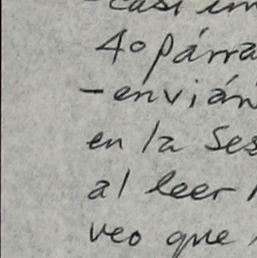 - casi im
4º párra
- envián
en la Ses
al leer
veo que